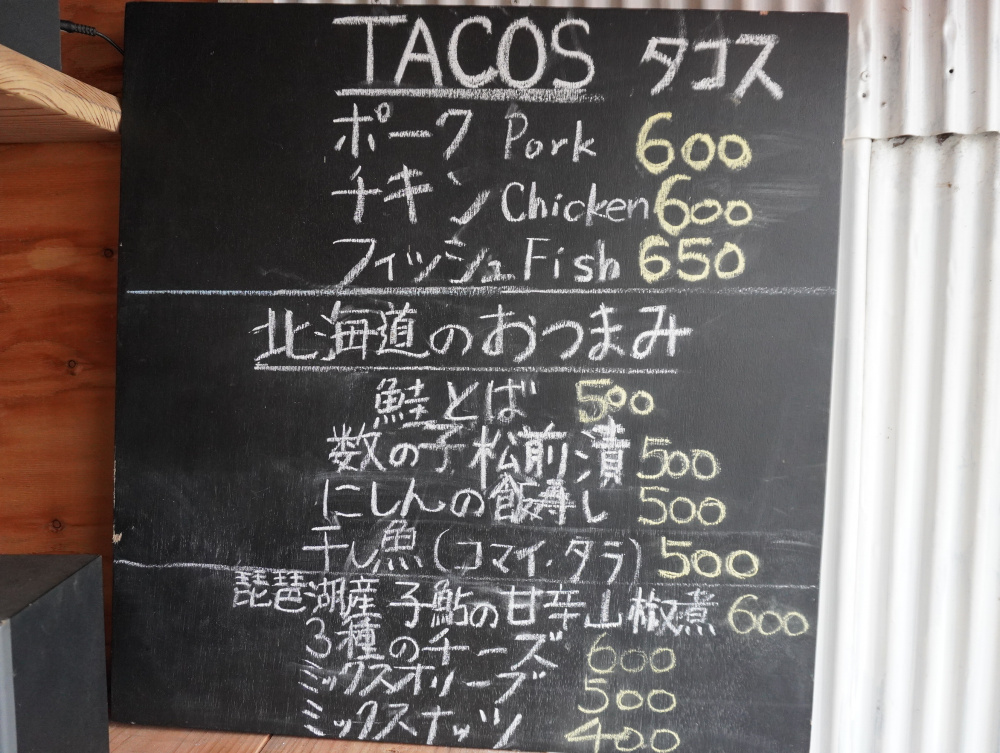 TACOS タコス
ポーク Pork 600
チキン Chicken 600
フィッシュ Fish 650
北海道のおつまみ
鮭とば 500
数の子松前漬 500
にしんの飯寿し 500
干し魚(コマイ・タラ) 500
琵琶湖産 子鮎の甘辛山椒煮 600
3種のチーズ 600
ミックスオリーブ 500
ミックスナッツ 400